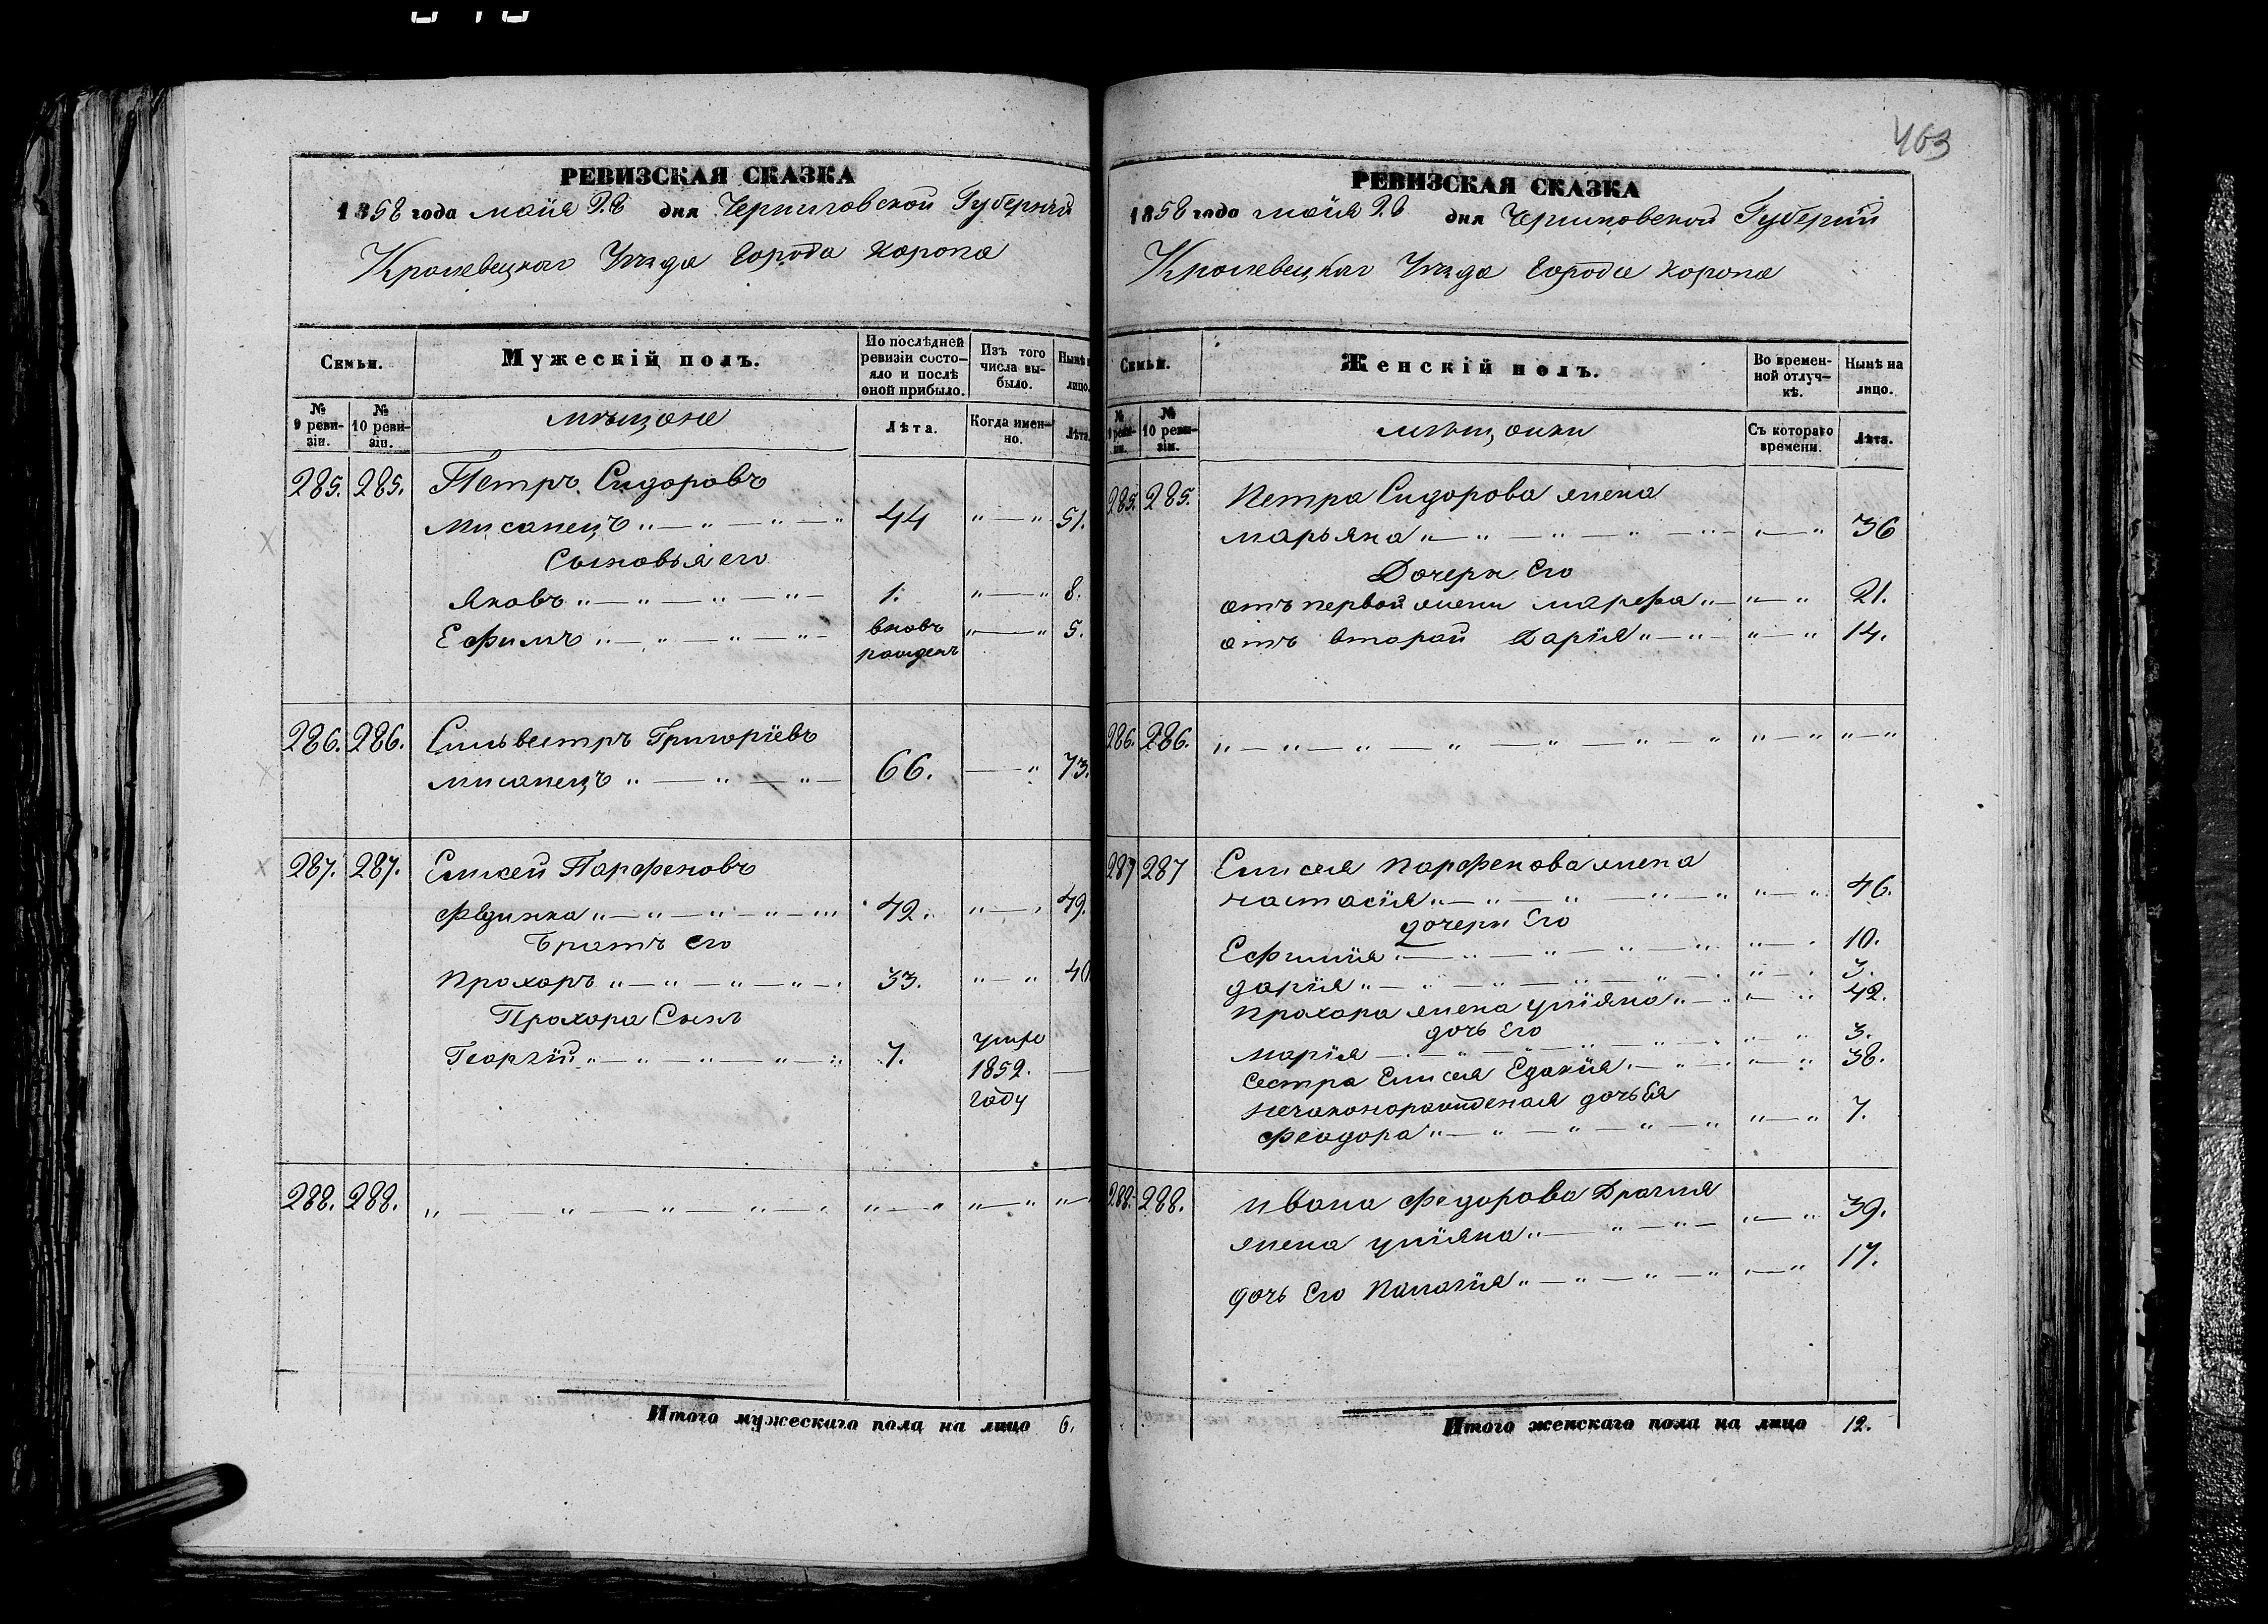 463
РЕВИЗСКАЯ СКАЗКА
1858 года маія 28 дня Черниговской Губерніи
Кролевецкаго Уѣзда Города Коропа
Семьи.
Мужескій полъ.
По послѣдней ревизіи состо-
яло и послѣ оной прибыло.
Изъ того числа вы-
было.
Нынѣ н
лицо.
№ 9 реви-
зіи.
№ 10 реви-
зіи.
мѣщане
Лѣта.
Когда имен-
но.
Лѣта.
285. 285. Петръ Сидоровъ
Мисанецъ 44 51.
Сыновья его
Яковъ 1. 8.
Ефимъ вновь рожденъ 5.
286. 286. Сильвестръ Григоріевъ
мисанецъ 66. 73.
287. 287. Елисей Парфеновъ
Фединка 42. 49.
Братъ его
Прохоръ 33. 40
Прохора Сынъ
Георгій 7. умре
1852.
году
288. 288.
Итого мужескаго пола на лицо 6.
РЕВИЗСКАЯ СКАЗКА
1858 года маія 28 дня Черниговской Губерніи
Кролевецкаго Уѣзда Города Коропа
Семьи.
Женскій полъ.
Во времен-
ной отлуч-
кѣ.
Нынѣ на
лицо.
№ 9 реви-
зіи.
№ 10 реви-
зіи.
мѣщанки
Съ котораго
времени.
Лѣта.
285. 285. Петра Сидорова жена
марьяна 36
Дочери Его
отъ первой жены марфа 21.
отъ второй Дарія 14.
286. 286.
287 287 Елисея Парфенова жена
настасія 46.
дочери Его
Ефимія 10.
дарія 3.
Прохора жена уліяна 42.
дочь Его
марія 3.
Сестра Елисея Едокія 38.
незаконорожденая дочь Ея
феодора 7.
288. 288. Ивана федорова Драгия
жена уліяна 39.
дочь Его Палагія 17.
Итого женскаго пола на лицо 12.